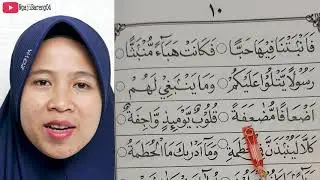 NgajiBareng04
١٠
فَاَنْبَتْنَا فِيْهَا حَبًّا فَكَانَتْ هَبَآءً مُّنْبَثًّا
رَسُوْلًا يَّتْلُوْا عَلَيْكُمْ وَمَا يَنْبَغِيْ لَهُمْ
اَضْعَافًا مُّضٰعَفَةً قُلُوْبٌ يَّوْمَئِذٍ وَّاجِفَةٌ
كَلَّا لَيُنْۢبَذَنَّ فِى الْحُطَمَةِ وَمَآ اَدْرٰىكَ مَا الْحُطَمَةُ